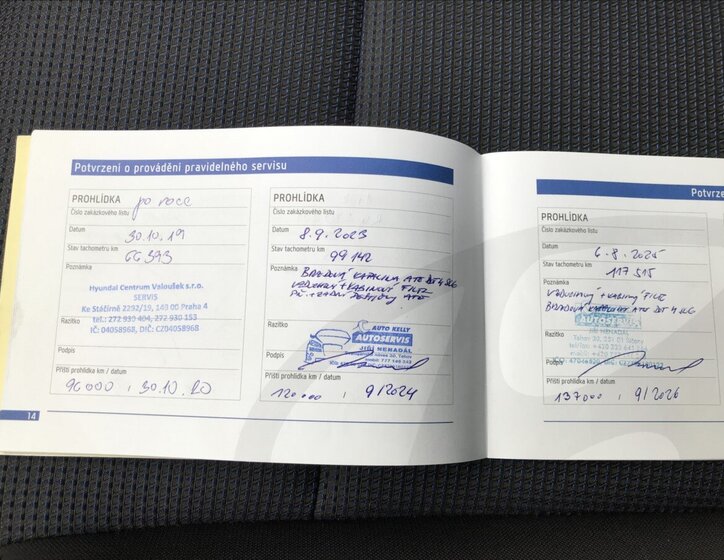 Potvrzení o provádění pravidelného servisu
PROHLÍDKA po roce
Číslo zakázkového listu
Datum 30.10.19
Stav tachometru km 66 393
Poznámka
Hyundai Centrum Valoušek s.r.o.
SERVIS
Ke Stáčírně 2292/19, 149 00 Praha 4
tel.: 272 930 404, 272 930 153
IČ: 04058968, DIČ: CZ04058968
Razítko
Podpis
Příští prohlídka km / datum
96 000 , 30.10.20
14
PROHLÍDKA
Číslo zakázkového listu
Datum 8.9.2023
Stav tachometru km 99 142
Poznámka
BRZDOVÁ KAPALINA ATE DOT 4
VZDUCHOVÝ + KABINOVÝ FILTR
PŘ. + ZADNÍ ATE
AUTO KELLY
AUTOSERVIS
JIŘÍ NENADÁL
Razítko
Podpis
Příští prohlídka km / datum
120 000 , 9/2024
Potvrze
PROHLÍDKA
Číslo zakázkového listu
Datum 6.8.2025
Stav tachometru km 117 515
Poznámka
VZDUCHOVÝ + KABINOVÝ
BRZDOVÁ KAPALINA ATE DOT 4
AUTOSERVIS
JIŘÍ NENADÁL
Razítko
Podpis
Příští prohlídka km / datum
137 000 , 9/2026